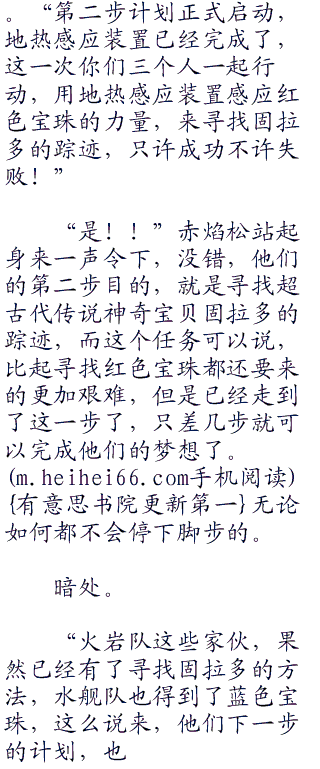 。“第二步计划正式启动，
地热感应装置已经完成了，
这一次你们三个人一起行
动，用地热感应装置感应红
色宝珠的力量，来寻找固拉
多的踪迹，只许成功不许失
败！”
“是！！”赤焰松站起
身来一声令下，没错，他们
的第二步目的，就是寻找超
古代传说神奇宝贝固拉多的
踪迹，而这个任务可以说，
比起寻找红色宝珠都还要来
的更加艰难，但是已经走到
了这一步了，只差几步就可
以完成他们的梦想了。
(m.heihei66.com手机阅读)
{有意思书院更新第一}无论
如何都不会停下脚步的。
暗处。
“火岩队这些家伙，果
然已经有了寻找固拉多的方
法，水舰队也得到了蓝色宝
珠，这么说来，他们下一步
的计划，也